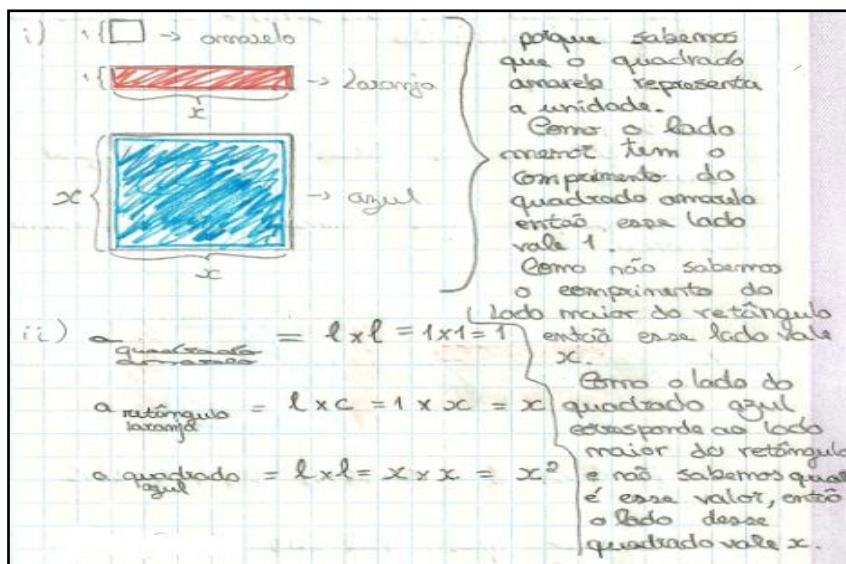 i) 1 { → amarelo
1 { → Laranja
x
x { → azul
x
porque sabemos
que o quadrado
amarelo representa
a unidade.
Como o lado
menor tem o
comprimento do
quadrado amarelo
então esse lado
vale 1.
Como não sabemos
o comprimento do
lado maior do retângulo
então esse lado vale
x.
Como o lado do
quadrado azul
corresponde ao lado
maior do retângulo
e não sabemos qual
é esse valor, então
o lado desse
quadrado vale x.
ii) a quadrado amarelo = l x l = 1 x 1 = 1
a retângulo laranja = l x c = 1 x x = x
a quadrado azul = l x l = x x x = x²